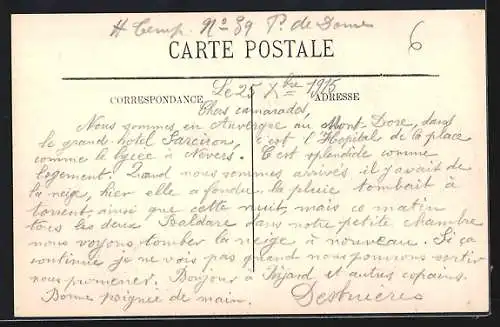 H Temp. N° 39 P. de Dome
6
CARTE POSTALE
Le 25 Xbre 1915
CORRESPONDANCE
ADRESSE
Chers camarades,
Nous sommes en Auvergne au Mont-Dore, dans
le grand hôtel Sarciron, c'est l'Hopital de la place
comme le lycée à Nevers. C'est splendide comme
logement. Quand nous sommes arrivés il y avait de
la neige, hier elle a fondue, la pluie tombait à
torrent, ainsi que cette nuit, mais ce matin
tous les deux dans notre petite chambre
nous voyons tomber la neige à nouveau. Si ça
continue je ne vois pas quand nous pourrons sortir
nous promener. Bonjour à et autres copains.
Bonne poignée de main.